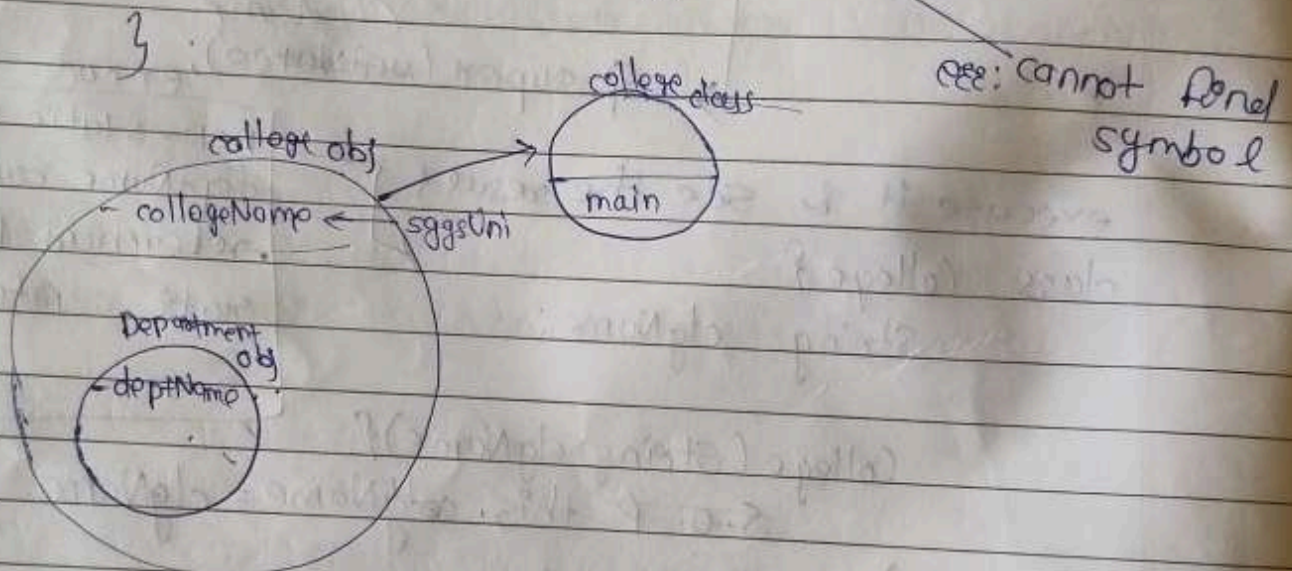 }
err: cannot find
symbol
college class
college obj
main
- collegeName ← sggsUni
Department
obj
- deptName